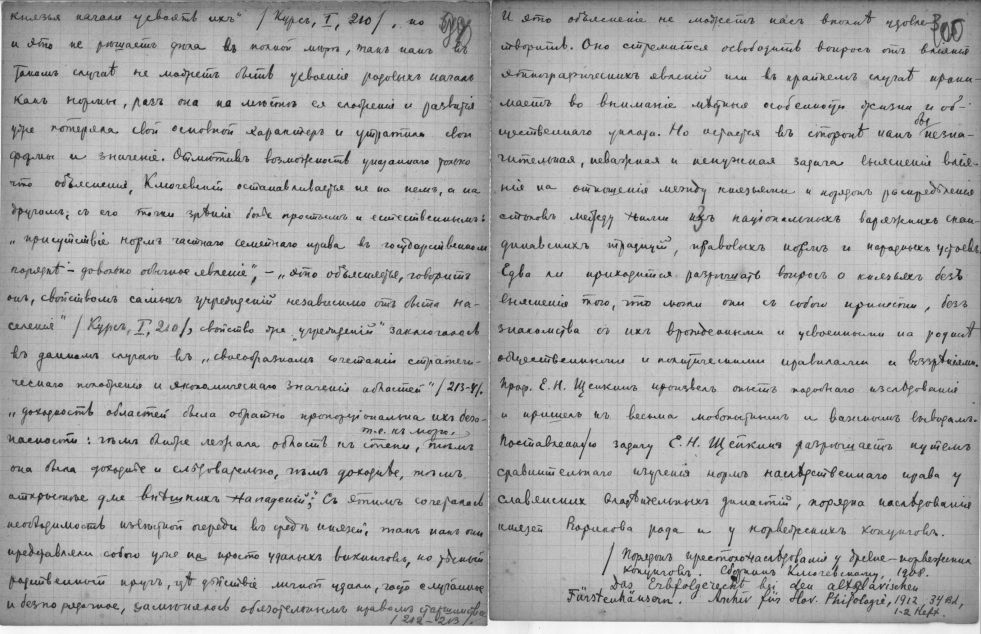 князья начали усвоять ихъ" / Курсъ, I, 210/, но
и это не рѣшаетъ дѣла въ полной мѣрѣ, такъ какъ въ
такомъ случаѣ не можетъ быть усвоенія родовыхъ началъ
какъ нормы, разъ она на мѣстѣ ея сложенія и развитія
уже потеряла свой основной характеръ и утратила свои
формы и значеніе. Отмѣтивъ возможность указаннаго только
что объясненія, Ключевскій останавливается не на немъ, а на
другомъ, съ его точки зрѣнія болѣе простомъ и естественномъ:
„присутствіе нормъ частнаго семейнаго права въ государственномъ
порядкѣ - довольно обычное явленіе", - „это объясняется, говоритъ
онъ, свойствомъ самыхъ учрежденій независимо отъ быта на-
селенія" / Курсъ, I, 210/, свойство же „учрежденій" заключалось
въ данномъ случаѣ въ „своеобразномъ сочетаніи стратеги-
ческаго положенія и экономическаго значенія областей" / 213-4/.
„доходность областей была обратно пропорціональна ихъ безо-
пасности: чѣмъ ближе лежала область къ степи, т.е. къ морю, тѣмъ
она была доходнѣе и слѣдовательно, чѣмъ доходнѣе, тѣмъ
открытѣе для внѣшнихъ нападеній"; Съ этимъ сочеталась
необходимость извѣстной очереди въ средѣ князей, такъ какъ они
представляли собою уже не просто удалыхъ викинговъ, но тѣсный
родственный кругъ, гдѣ дѣйствіе личной удали, часто случайное
и безпорядочное, замѣнялось обязательнымъ правомъ старшинства
/ 212 - 213 /.
305
И это объясненіе не можетъ насъ вполнѣ удовле-
творить. Оно стремится освободить вопросъ отъ вліянія
этнографическихъ явленій или въ крайнемъ случаѣ прини-
маетъ во вниманіе мѣстныя особенности жизни и об-
щественнаго уклада. Но остается въ сторонѣ какъ бы незна-
чительная, неважная и ненужная задача выясненіе влія-
нія на отношенія между князьями и порядокъ распредѣленія
столовъ между ними ихъ національныхъ варяжскихъ скан-
динавскихъ традицій, правовыхъ нормъ и народныхъ устоевъ.
Едва ли приходится разрѣшать вопросъ о князьяхъ безъ
выясненія того, что могли они съ собою принести, безъ
знакомства съ ихъ врожденными и усвоенными на родинѣ
общественными и политическими правилами и воззрѣніями.
Проф. Е. Н. Щепкинъ произвелъ опытъ подобнаго изслѣдованія
и пришелъ къ весьма любопытнымъ и важнымъ выводамъ.
Поставленную задачу Е. Н. Щепкинъ разрѣшаетъ путемъ
сравнительнаго изученія нормъ наслѣдственнаго права у
славянскихъ владѣтельныхъ династій, порядка наслѣдованія
князей Рюрикова рода и у норвежскихъ конунговъ.
/ Порядокъ престолонаслѣдованія у древне-норвежскихъ
конунговъ. Сборникъ Ключевскому, 1908.
Das Erbfolgerecht bei den altslavischen
Fürstenhäusern. Archiv für slav. Philologie, 1912, 34 Bd,
1-2 Heft.